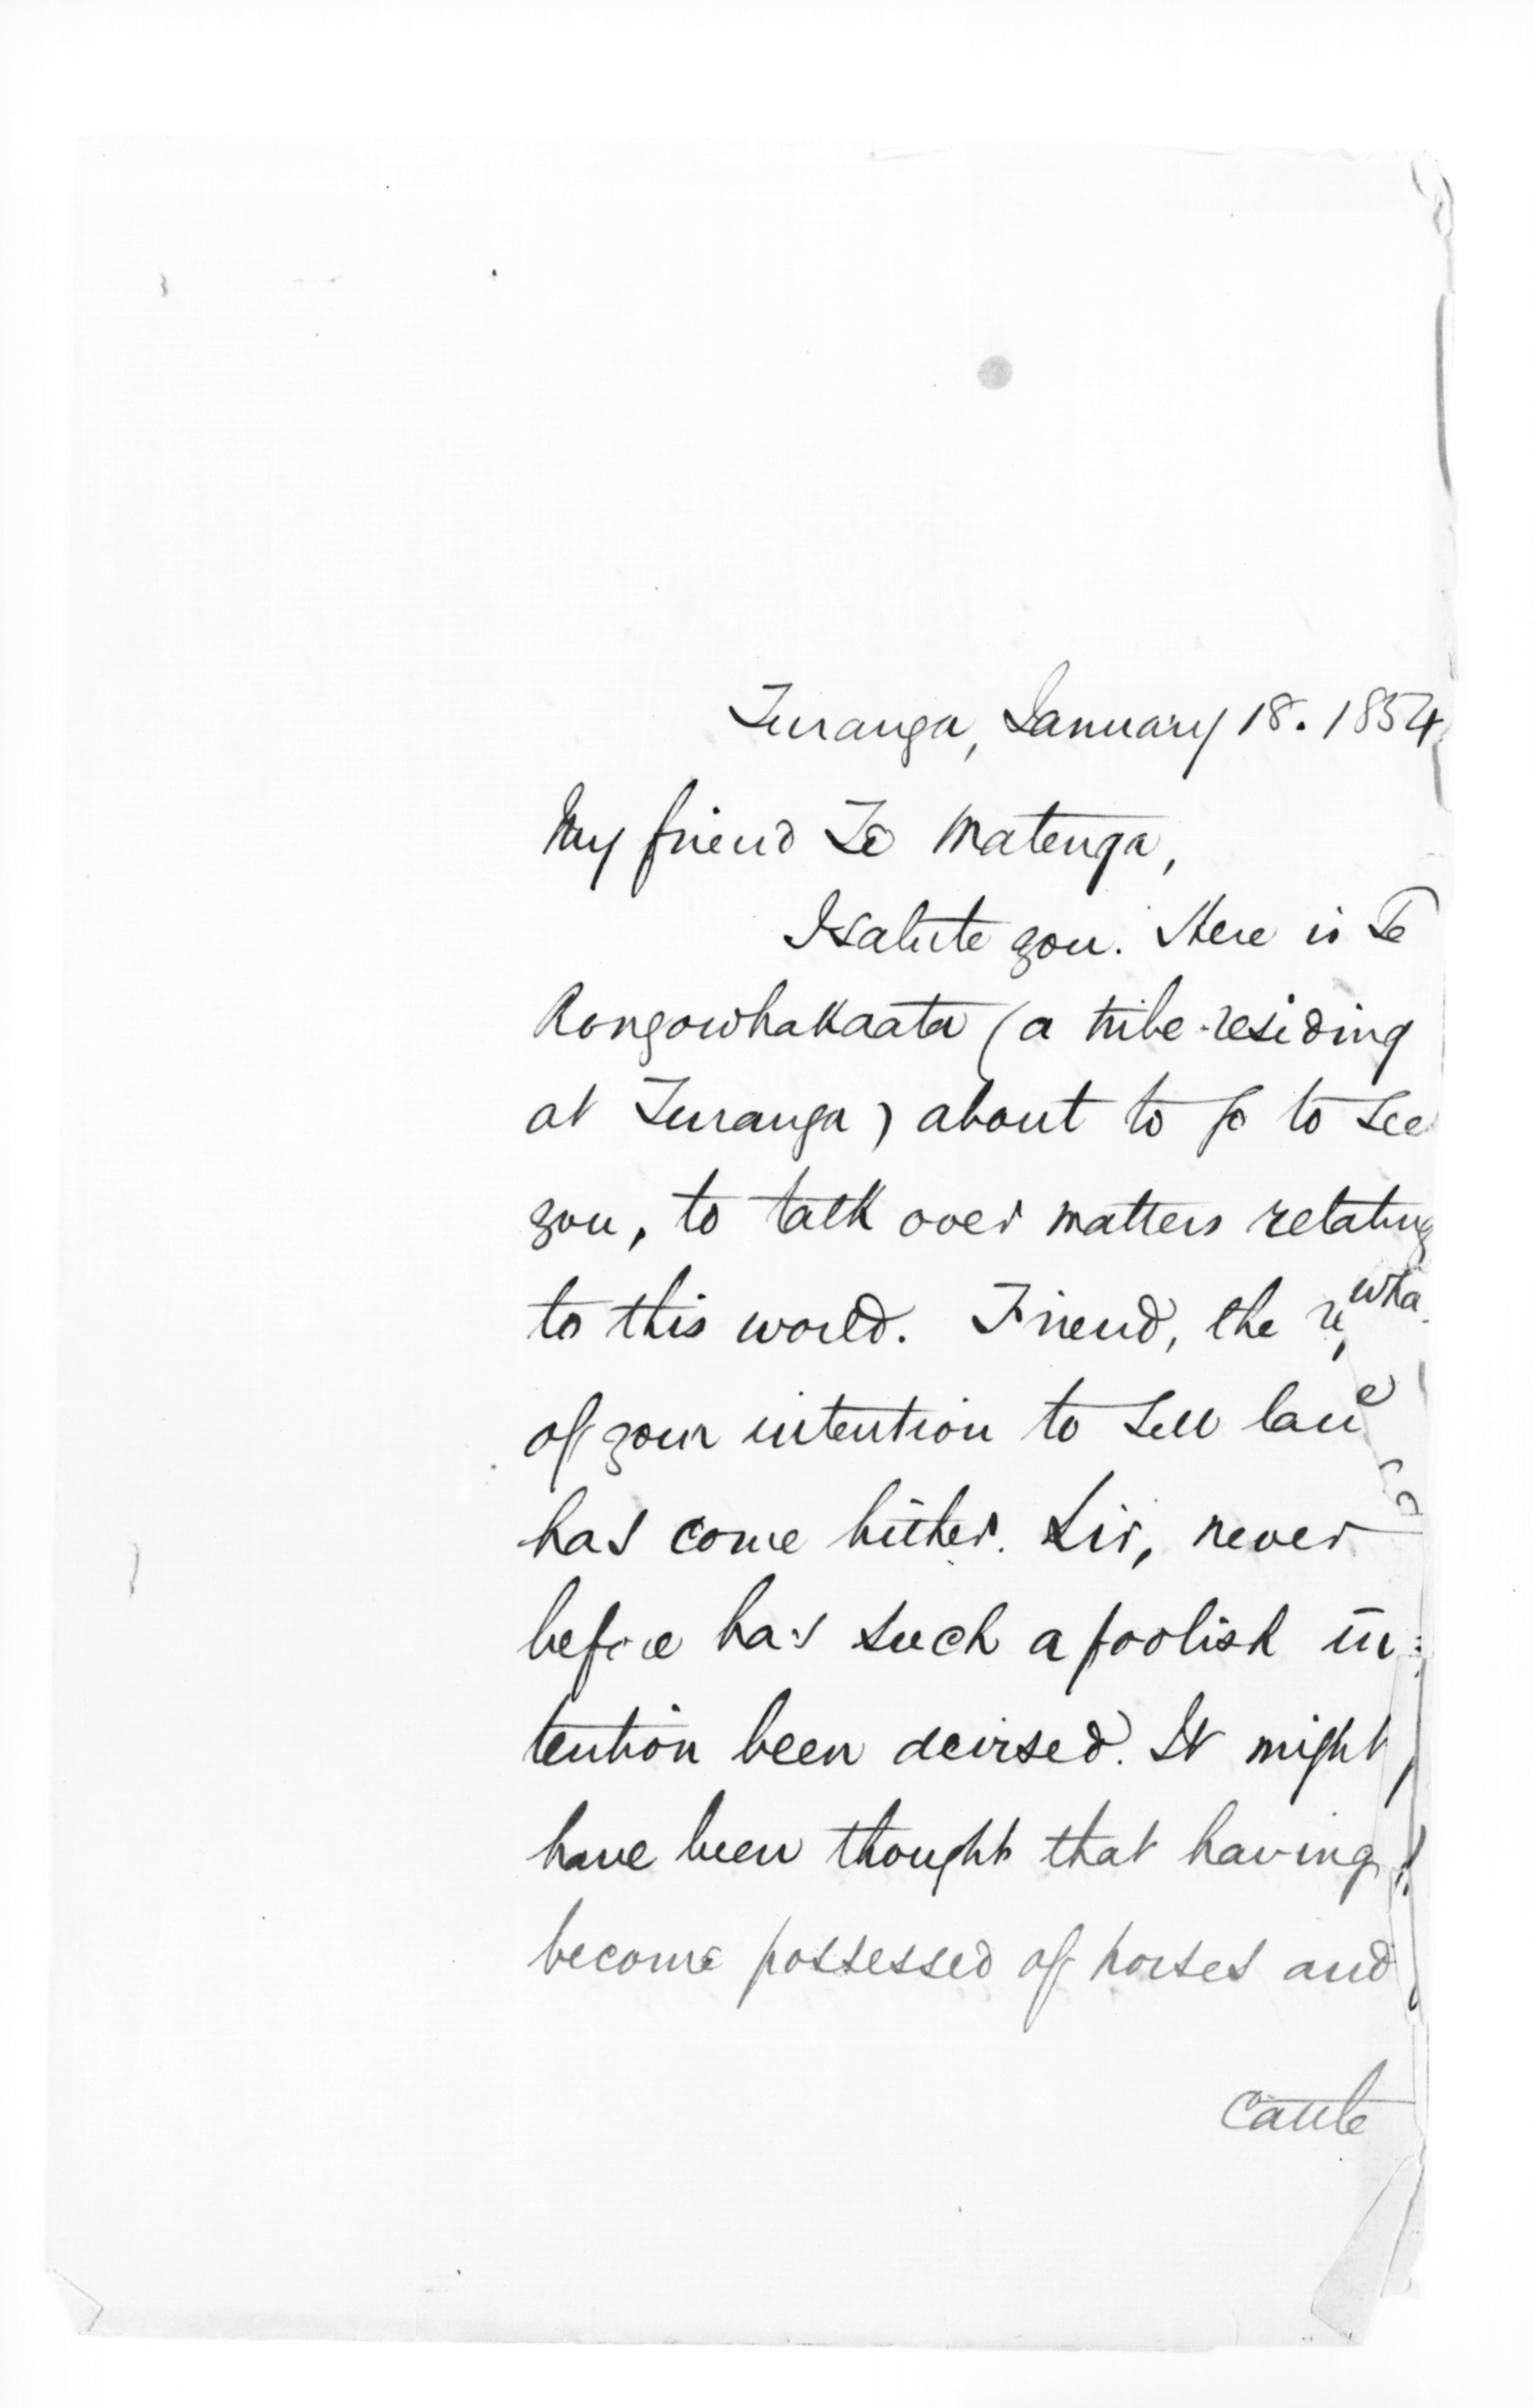 Turanga, January 18. 1854
My friend Te Matenga,
I salute you. Here is Te
Rongowhakaata (a tribe residing
at Turanga) about to go to see
you, to talk over matters relating
to this world. Friend, the
of your intention to sell land
has come hither. Sir, never
before has such a foolish in:
tention been devised. It might
have been thought that having
become possessed of horses and
Cattle